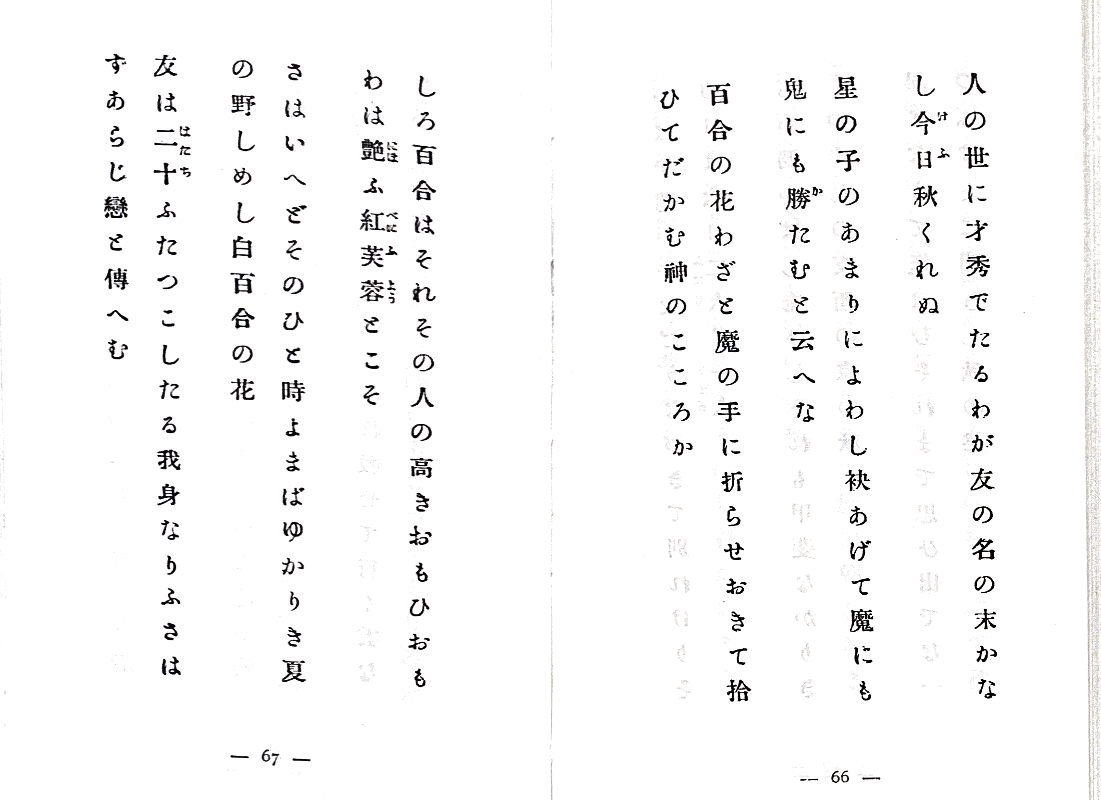 人の世に才秀でたるわが友の名の末かな
し今日秋くれぬ
星の子のあまりによわし袂あげて魔にも
鬼にも勝たむと云へな
百合の花わざと魔の手に折らせおきて拾
ひてだかむ神のこころか
— 66 —
しろ百合はそれその人の高きおもひおも
わは艶ふ紅芙蓉とこそ
さはいへどそのひと時よまばゆかりき夏
の野しめし白百合の花
友は二十ふたつこしたる我身なりふさは
ずあらじ戀と傳へむ
— 67 —